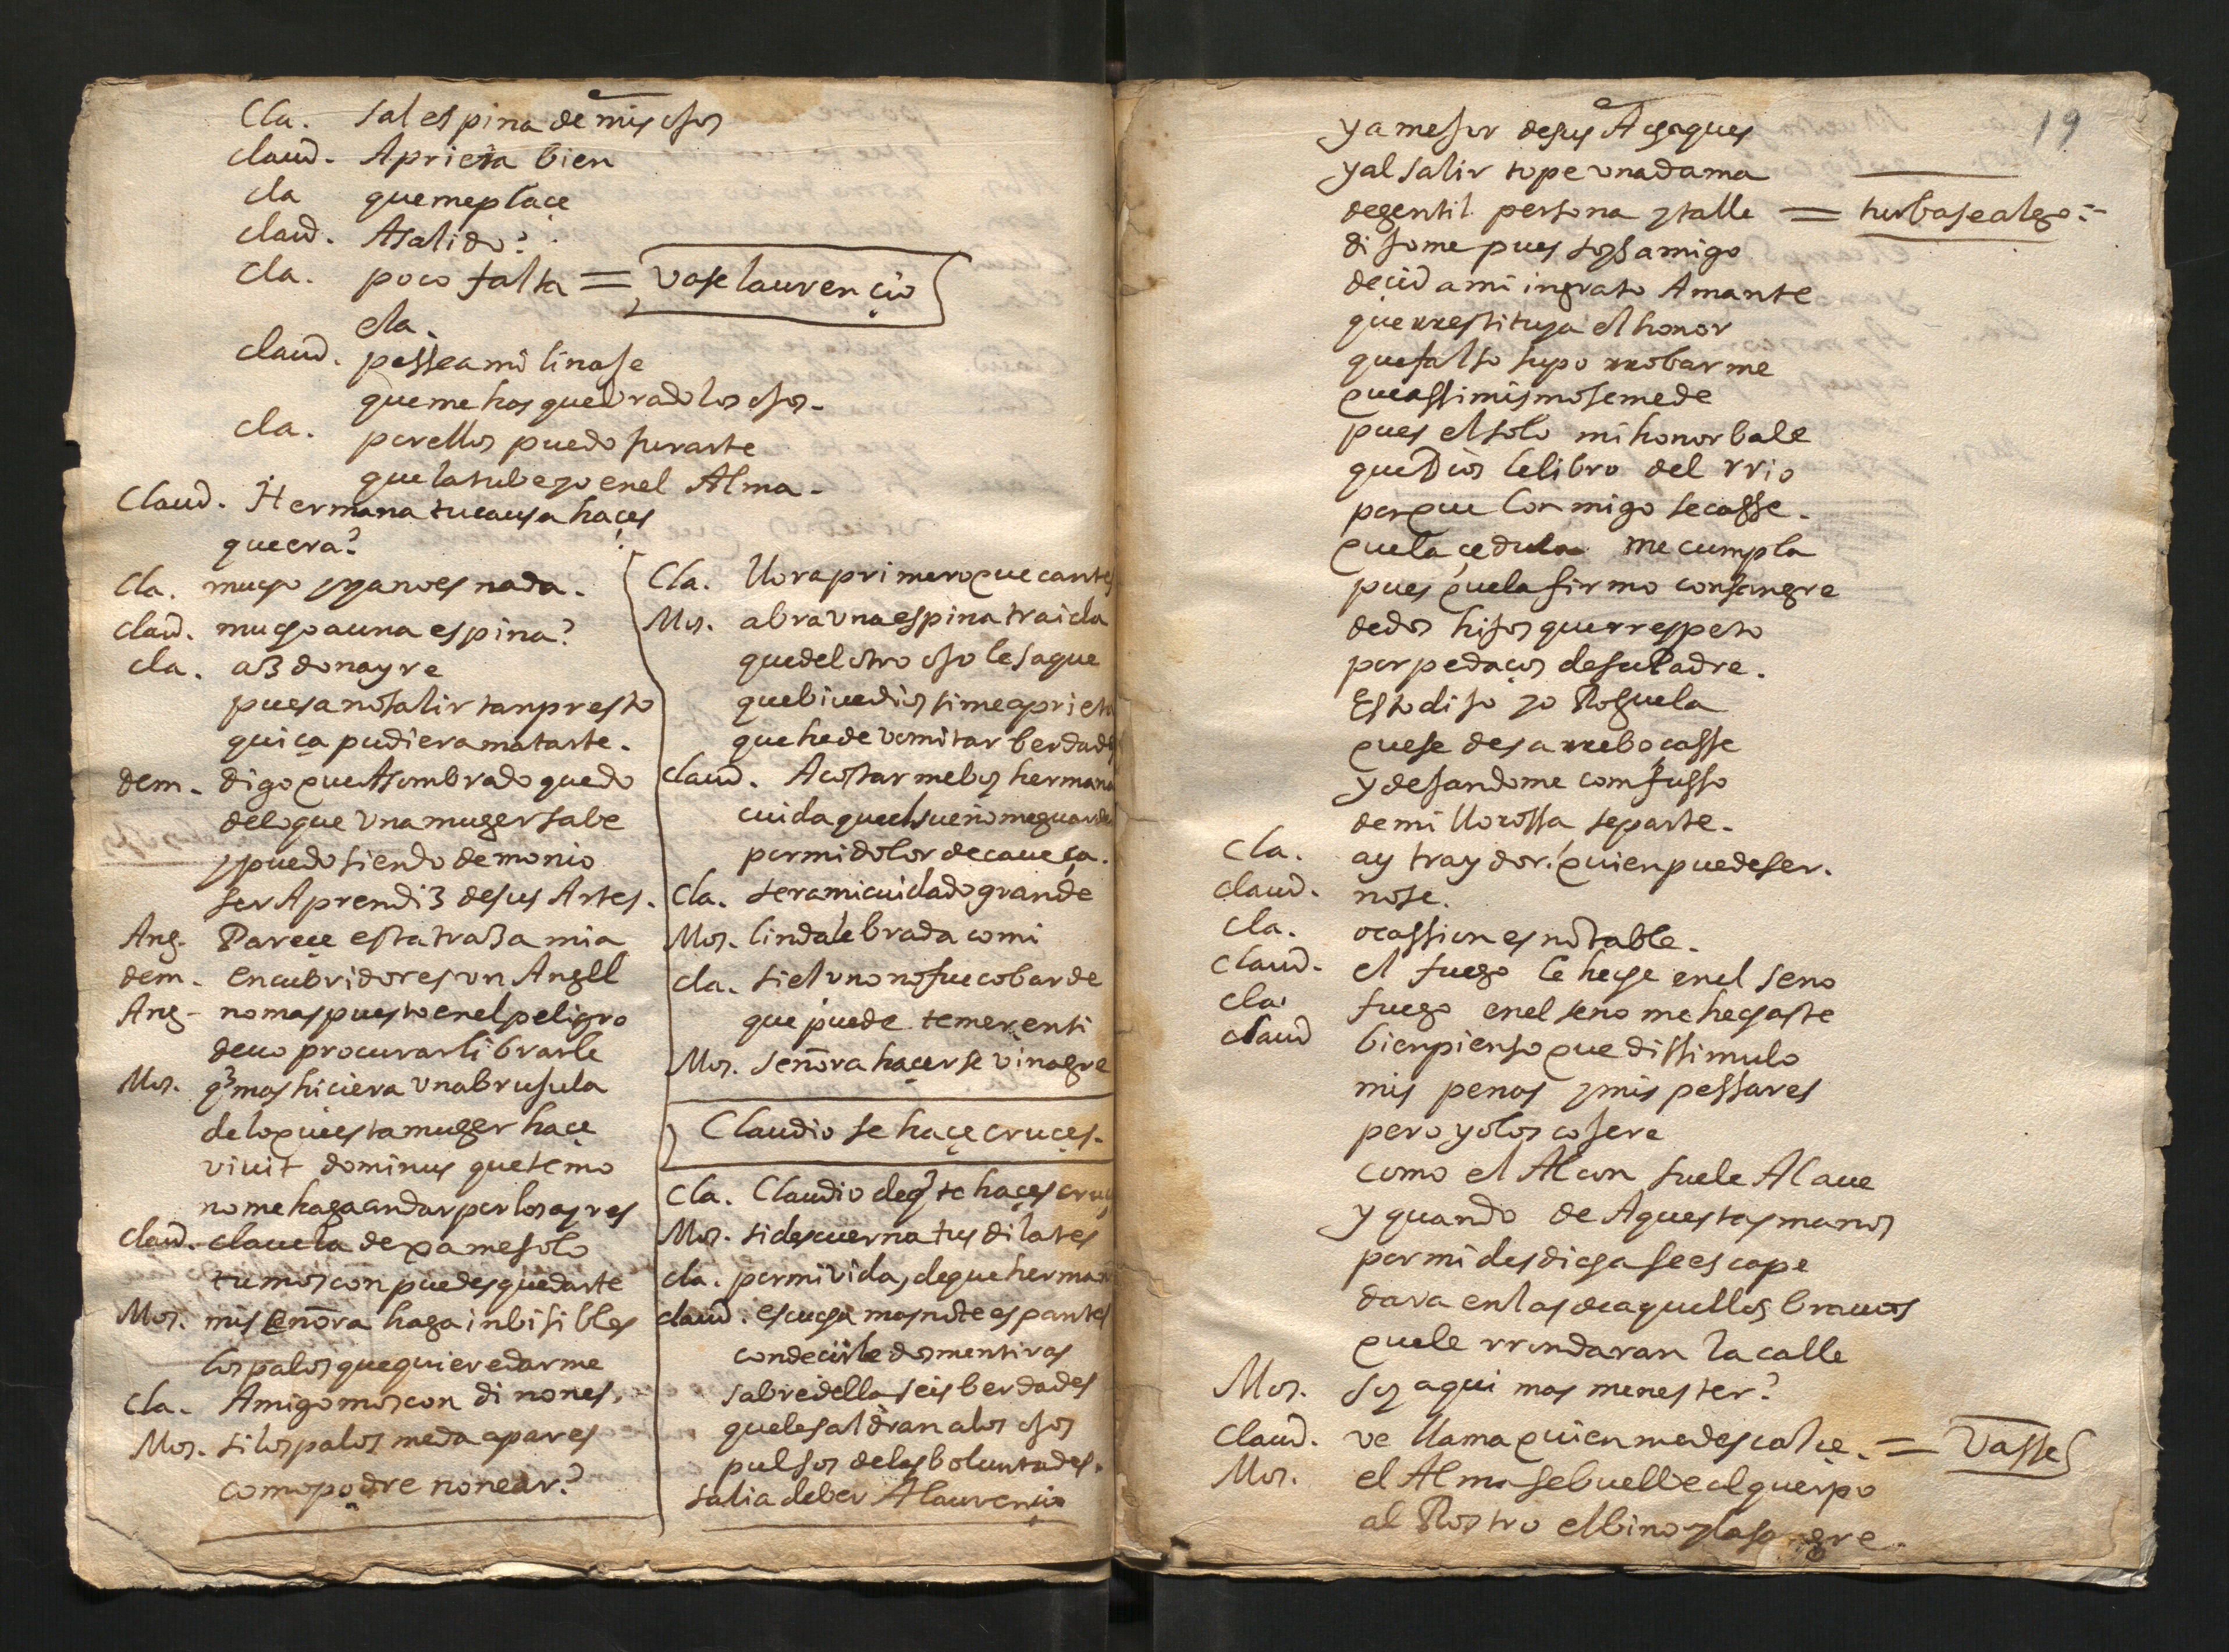 Cla. sal espina de mis ojos
claud. Aprieta bien
cla que me plaçe
claud. A salido?
cla. poco falta = vase laurençio
cla.
claud. pessea mi linaje
que me has quebrado los ojos.
cla. por ellos puedo jurarte
que la tube yo en el Alma.
Claud. Hermana tu causa haçes
que era?
Cla. mucho y ya no es nada.
claud. mucho a una espina?
cla. az donayre
pues a no salir tan presto
quiça pudiera matarte.
dem. digo que Asombrado quedo
de lo que una muger sabe
y puedo siendo demonio
ser Aprendiz de sus Artes.
Ang. Pareçe esta traza mia
dem. encubridor es un Angel
Ang. no mas puesto en el peligro
devo procurar librarle
Mos. q mas hiciera una brujula
de lo que esta muger haçe
vivit dominus que temo
no me haga andar por los ayres
Claud. clavela dexame solo
tu moscon puedes quedarte
Mos. mi señora haga inbisibles
los palos que quiere darme
Cla. Amigo moscon di nones.
Mos. si los palos me da a pares
como podre nonear?
Cla. llora primero que cantes
Mos. abra una espina traida
que del otro ojo le saque
que bive dios si me aprieta
que he de vomitar berdades
claud. Acostar me boy hermana
cuida que el sueño me guarden
por mi dolor de caveça.
Cla. sera mi cuidado grande
Mos. linda lebrada comi
cla. si el uno no fue cobarde
que puede temer en ti
Mos. señora haçerse vinagre
Claudio se haçe cruçes.
Cla. Claudio de q te haçes cruç
Mos. si descuerna tus dilates
cla. por mi vida, de que hermano
claud. escucha mas no te espantes
con decirle dos mentiras
sabre della seis berdades
que le saldran a los ojos
pulsos de las boluntades.
salia de ber A laurençio
19
y a mejor de sus Achaques
y al salir tope una dama
de gentil persona y talle = turbase algo
dijome pues soys amigo
deçid a mi ingrato Amante
que rrestituya el honor
que falso supo rrobarme
que assi mismo se me de
pues el solo mi honor bale
que Dios le libro del rrio
porque Conmigo se casse.
que la çedula me cumpla
pues que la firmo con sangre
de dos hijos que rrespeto
por pedaços de su Padre.
Esto dijo yo Roguela
que se desarrebocasse
y dejandome comfusso
de mi llorossa se parte.
Cla. ay traydor! quien puede ser.
claud. no se.
cla. ocassion es notable.
claud. el fuego le heche en el seno
cla. fuego en el seno me hechaste
claud bien pienso que dissimulo
mis penas y mis pessares
pero yo los cojere
como el Alcon suele Al ave
y quando de Aquestas manos
por mi desdicha se escape
dara en las de aquellos bravos
que le rrondaran la calle
Mos. soy aqui mas menester?
Claud. ve llama quien me descalçe. = Vasse
Mos. el Alma se buelbe al querpo
al Rostro el bino y la sangre.